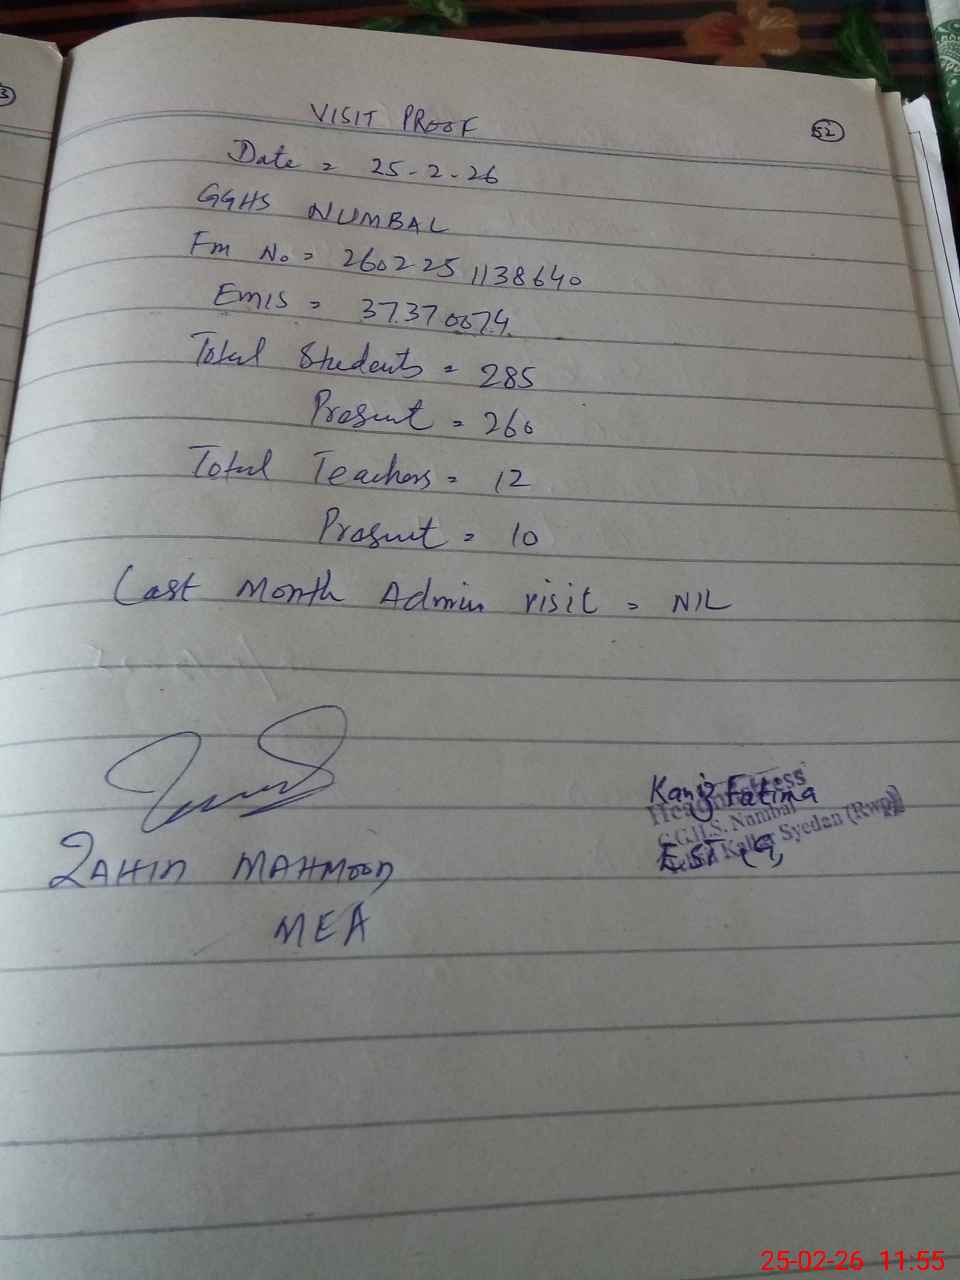 3
52
VISIT PROOF
Date = 25-2-26
GGHS NUMBAL
Fm No = 2602251138640
Emis = 37370074
Total Students = 285
Present = 260
Total Teachers = 12
Present = 10
Last Month Admin visit = NIL
ZAHID MAHMOOD
MEA
Kaniz Fatima
Headmistress
G.G.H.S. Nambal
Kallar Syedan (Rwp)
EST
25-02-26 11:55